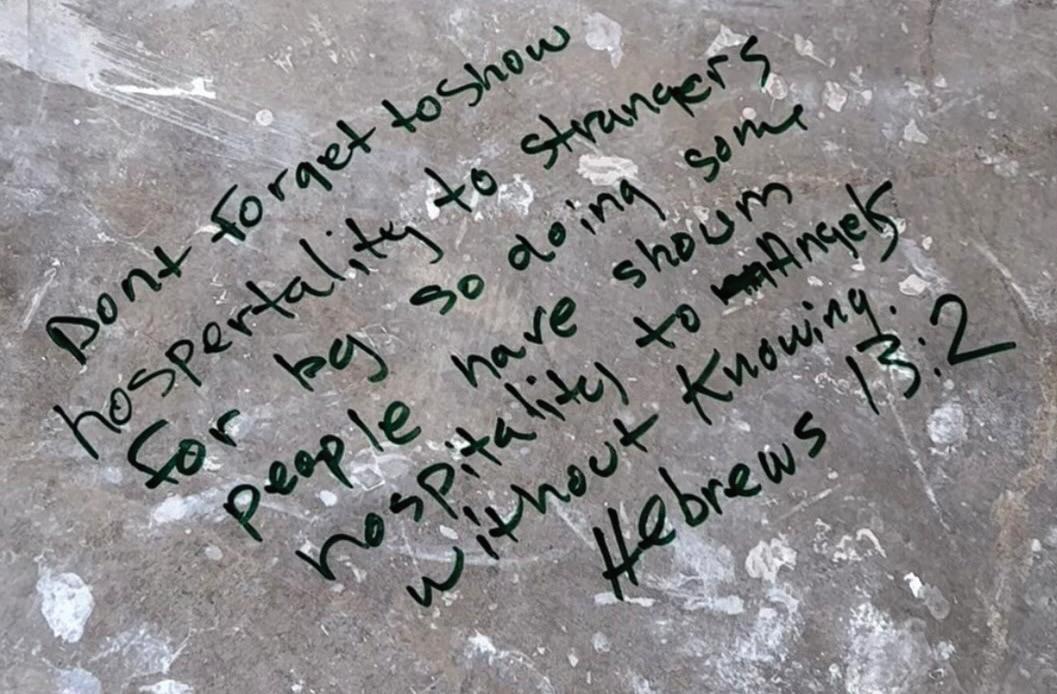 Dont forget to show
hospertality to strangers
for by so doing some
people have shown
hospitality to Angels
without Knowing.
Hebrews 13:2